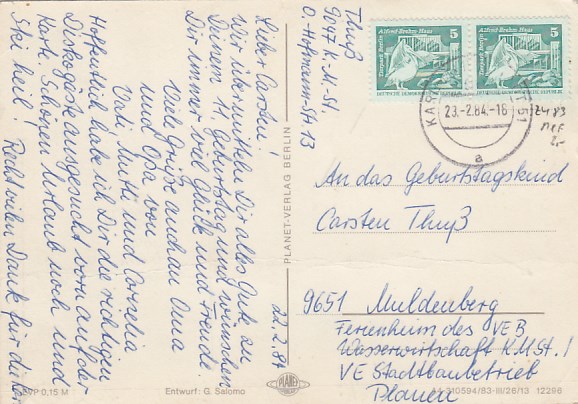 Thuß
9047 K.-M.-St
O.-Hofmann-Str 13
22.2.84
Lieber Carsten!
Wir übermitteln Dir alles Gute zu
Deinem 12. Geburtstag und wünschen
Dir immer viel Glück und Freude
Viele Grüße auch an Oma
und Opa von
Vati, Mutti und Cornelia
Hoffentlich habe ich Dir die richtigen
Diskogäste ausgesucht vorn auf der
Karte. Schönen Urlaub noch und
Ski heil! Recht vielen Dank für die
EVP 0,15 M
Entwurf: G. Salomo
PLANET-VERLAG BERLIN
PLANET
Alfred-Brehm-Haus 5
Tierpark Berlin
DEUTSCHE DEMOKRATISCHE REPUBLIK
Alfred-Brehm-Haus 5
Tierpark Berlin
DEUTSCHE DEMOKRATISCHE REPUBLIK
23.-2.84.-16
a
2483
MeF
2,-
An das Geburtstagskind
Carsten Thuß
9651 Muldenberg
Ferienheim des VEB
Wasserwirtschaft KMSt.1
VE Stadtbaubetrieb
Plauen
310594/83-III/26/13 12296